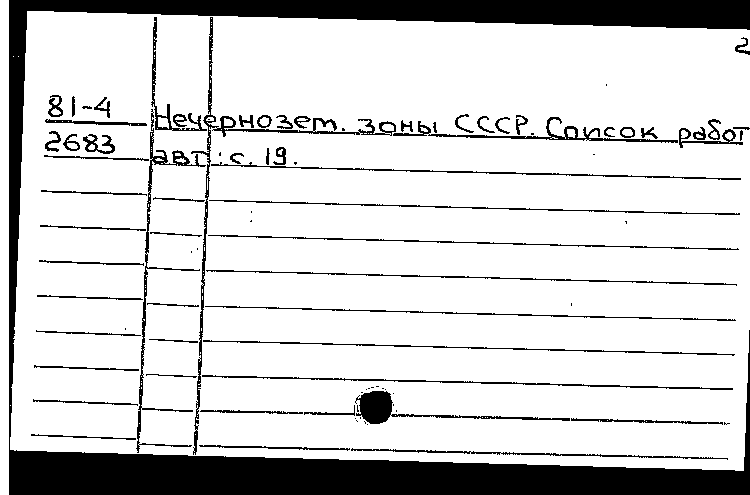 2
81-4 Нечернозем. зоны СССР. Список работ
2683 авт.: с. 19.